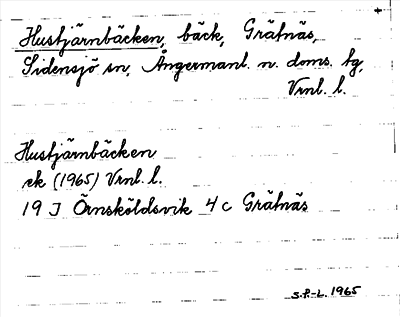 Hustjärnbäcken, bäck, Grätnäs,
Sidensjö sn, Ångermanl. n. doms. tg,
Vrnl. l.
Hustjärnbäcken
ek (1965) Vrnl. l.
19 J Örnsköldsvik 4 c Grätnäs
S.P.-L. 1965